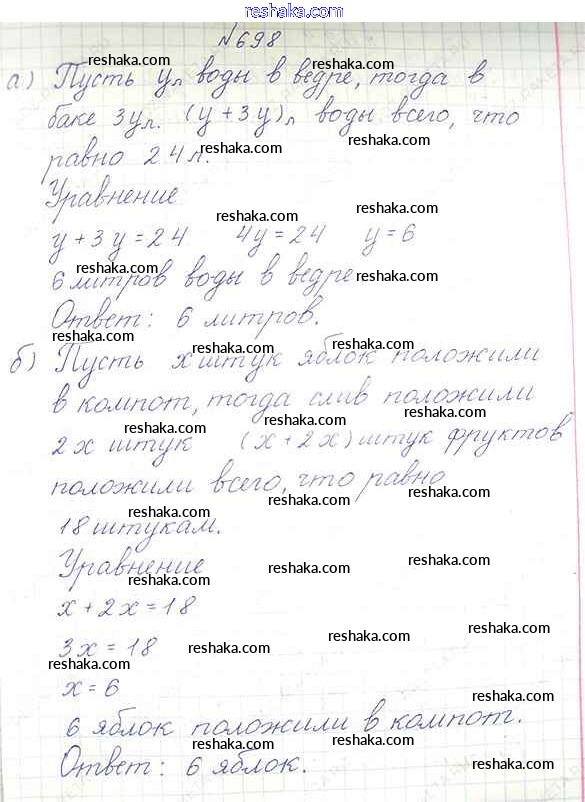 reshaka.com
№698
reshaka.com reshaka.com
а) Пусть y л воды в ведре, тогда в
reshaka.com reshaka.com
баке 3y л. (y + 3y) л воды всего, что
reshaka.com reshaka.com
равно 24 л.
reshaka.com
Уравнение
reshaka.com reshaka.com
y + 3y = 24 4y = 24 y = 6
reshaka.com reshaka.com
6 литров воды в ведре
reshaka.com
Ответ: 6 литров.
reshaka.com reshaka.com
б) Пусть x штук яблок положили
reshaka.com reshaka.com
в компот, тогда слив положили
reshaka.com reshaka.com
2x штук (x + 2x) штук фруктов
reshaka.com reshaka.com
положили всего, что равно
reshaka.com reshaka.com
18 штукам.
reshaka.com reshaka.com
Уравнение
reshaka.com
x + 2x = 18
reshaka.com
3x = 18
reshaka.com reshaka.com
reshaka.com
x = 6
reshaka.com
6 яблок положили в компот.
reshaka.com reshaka.com
Ответ: 6 яблок.
reshaka.com reshaka.com